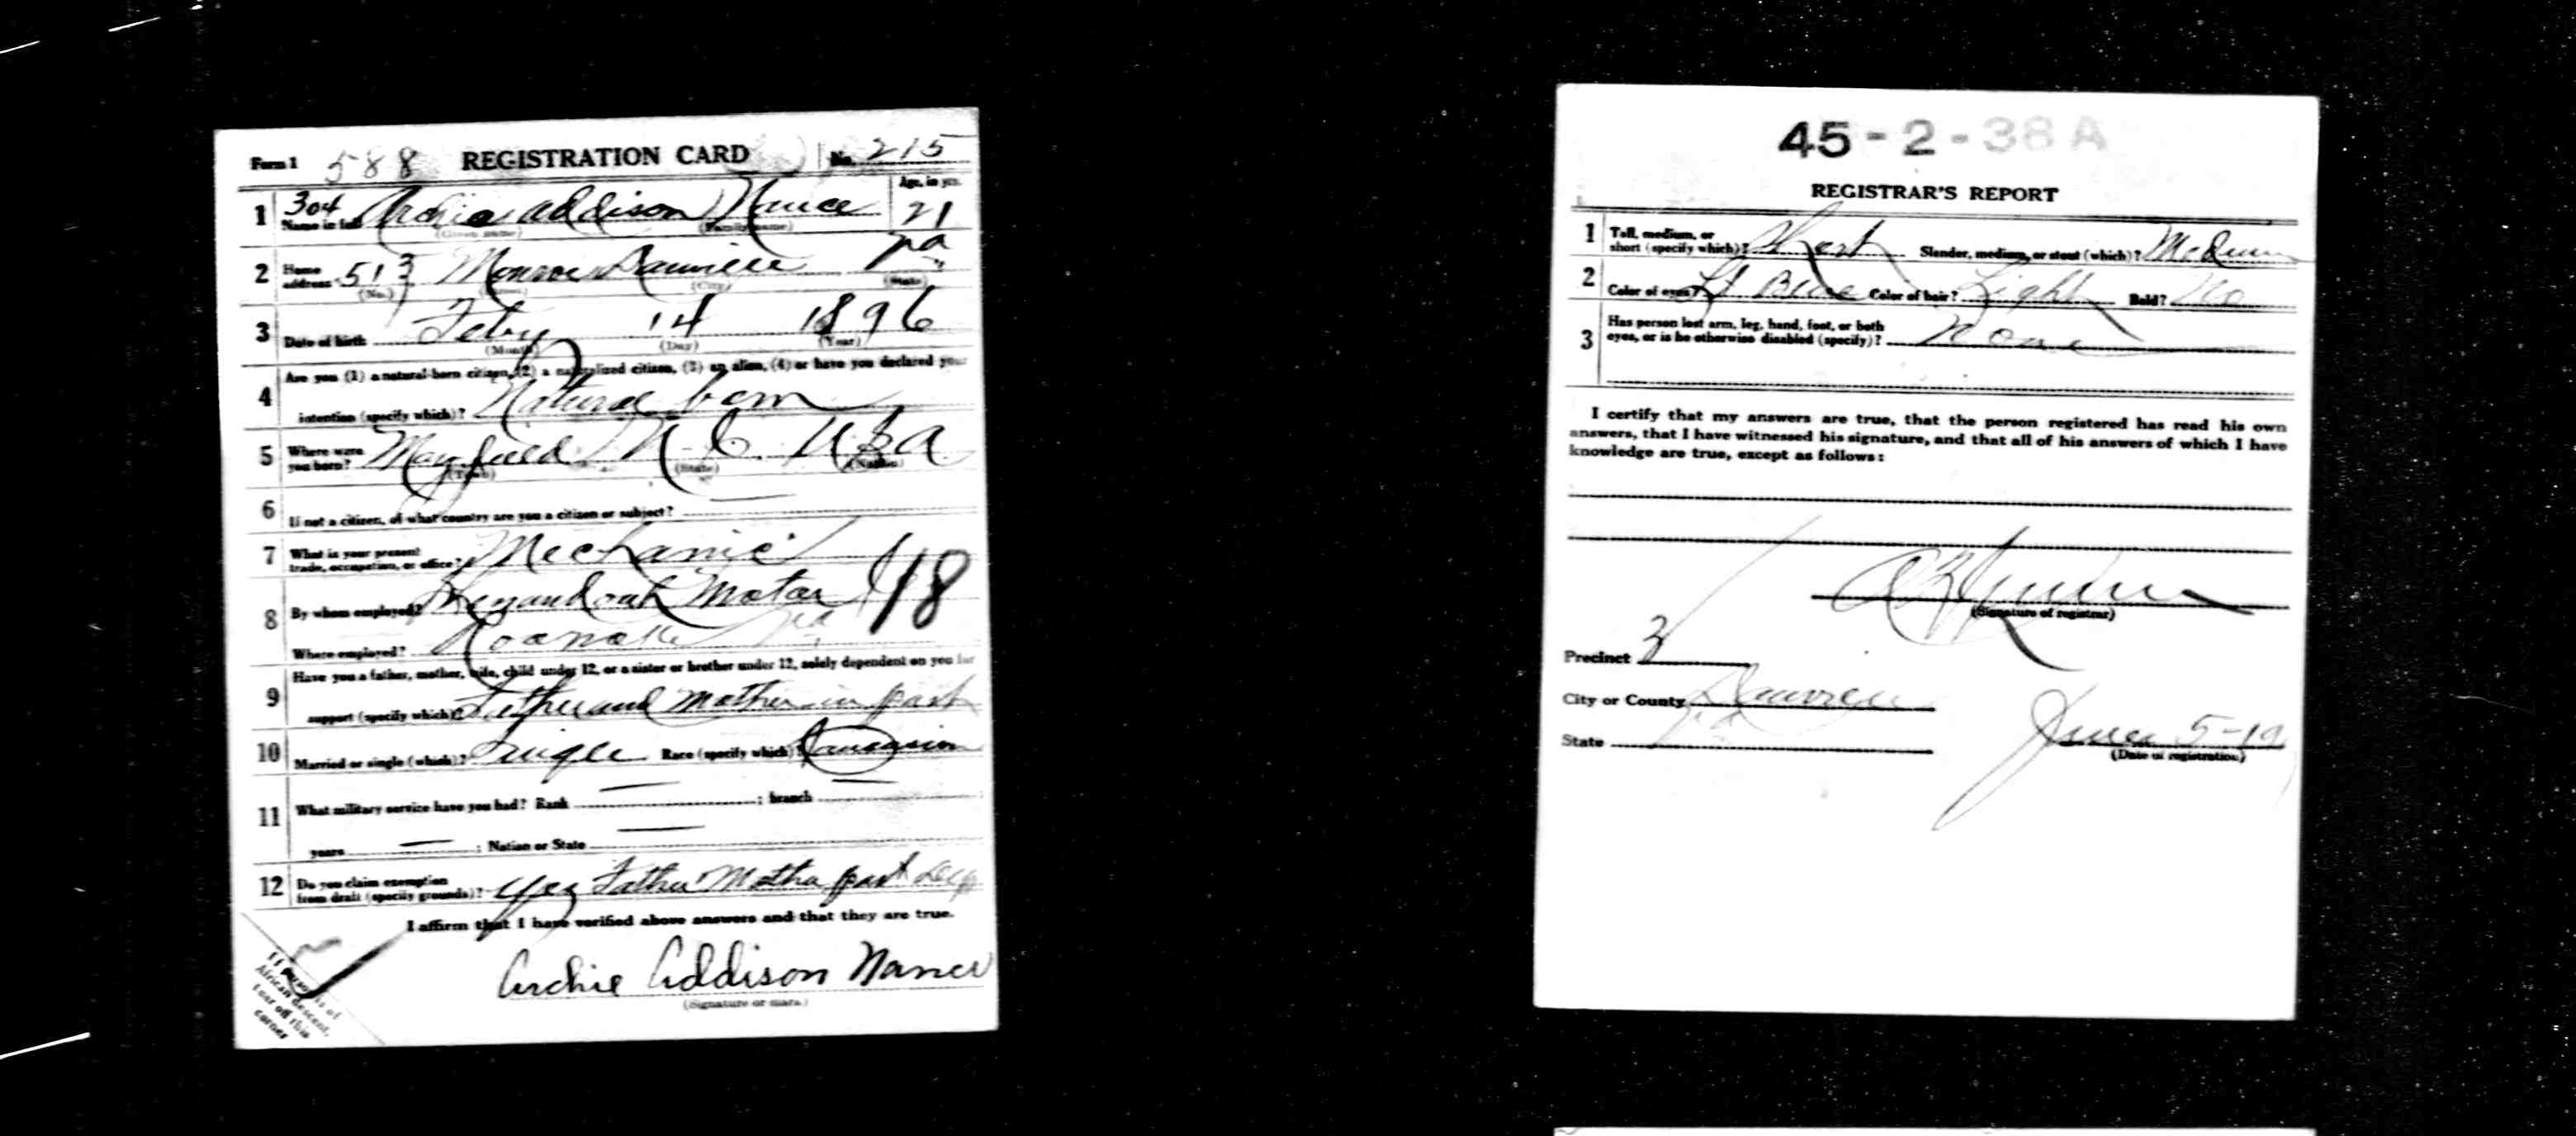 Form 1 588 REGISTRATION CARD No. 215
1 304 Name in full Archie Addison Nance Age, in yrs. 21
(Given name) (Family name)
2 Home address 513 Monroe Danville Va
(No.) (Street) (City) (State)
3 Date of birth Feby 14 1896
(Month) (Day) (Year)
4 Are you (1) a natural-born citizen, (2) a naturalized citizen, (3) an alien, (4) or have you declared your
intention (specify which)? Natural born
5 Where were you born? Mayfield N.C. USA
(Town) (State) (Nation)
6 If not a citizen, of what country are you a citizen or subject?
7 What is your present trade, occupation, or office? Mechanic
8 By whom employed? Shenandoah Motor 48
Where employed? Roanoke Va
9 Have you a father, mother, wife, child under 12, or a sister or brother under 12, solely dependent on you for
support (specify which)? Father and Mother in part
10 Married or single (which)? Single Race (specify which)? Caucasian
11 What military service have you had? Rank ; branch
years ; Nation or State
12 Do you claim exemption from draft (specify grounds)? Yes Father Mother part
I affirm that I have verified above answers and that they are true.
Archie Addison Nance
(Signature or mark)
If person is of
African descent,
tear off this
corner
45-2-38A
REGISTRAR'S REPORT
1 Tall, medium, or short (specify which)? Short Slender, medium, or stout (which)? Medium
2 Color of eyes? Lt Blue Color of hair? Light Bald? No
3 Has person lost arm, leg, hand, foot, or both
eyes, or is he otherwise disabled (specify)? None
I certify that my answers are true, that the person registered has read his own
answers, that I have witnessed his signature, and that all of his answers of which I have
knowledge are true, except as follows:
(Signature of registrar)
Precinct 3
City or County Danville
State Va
June 5-19
(Date of registration)